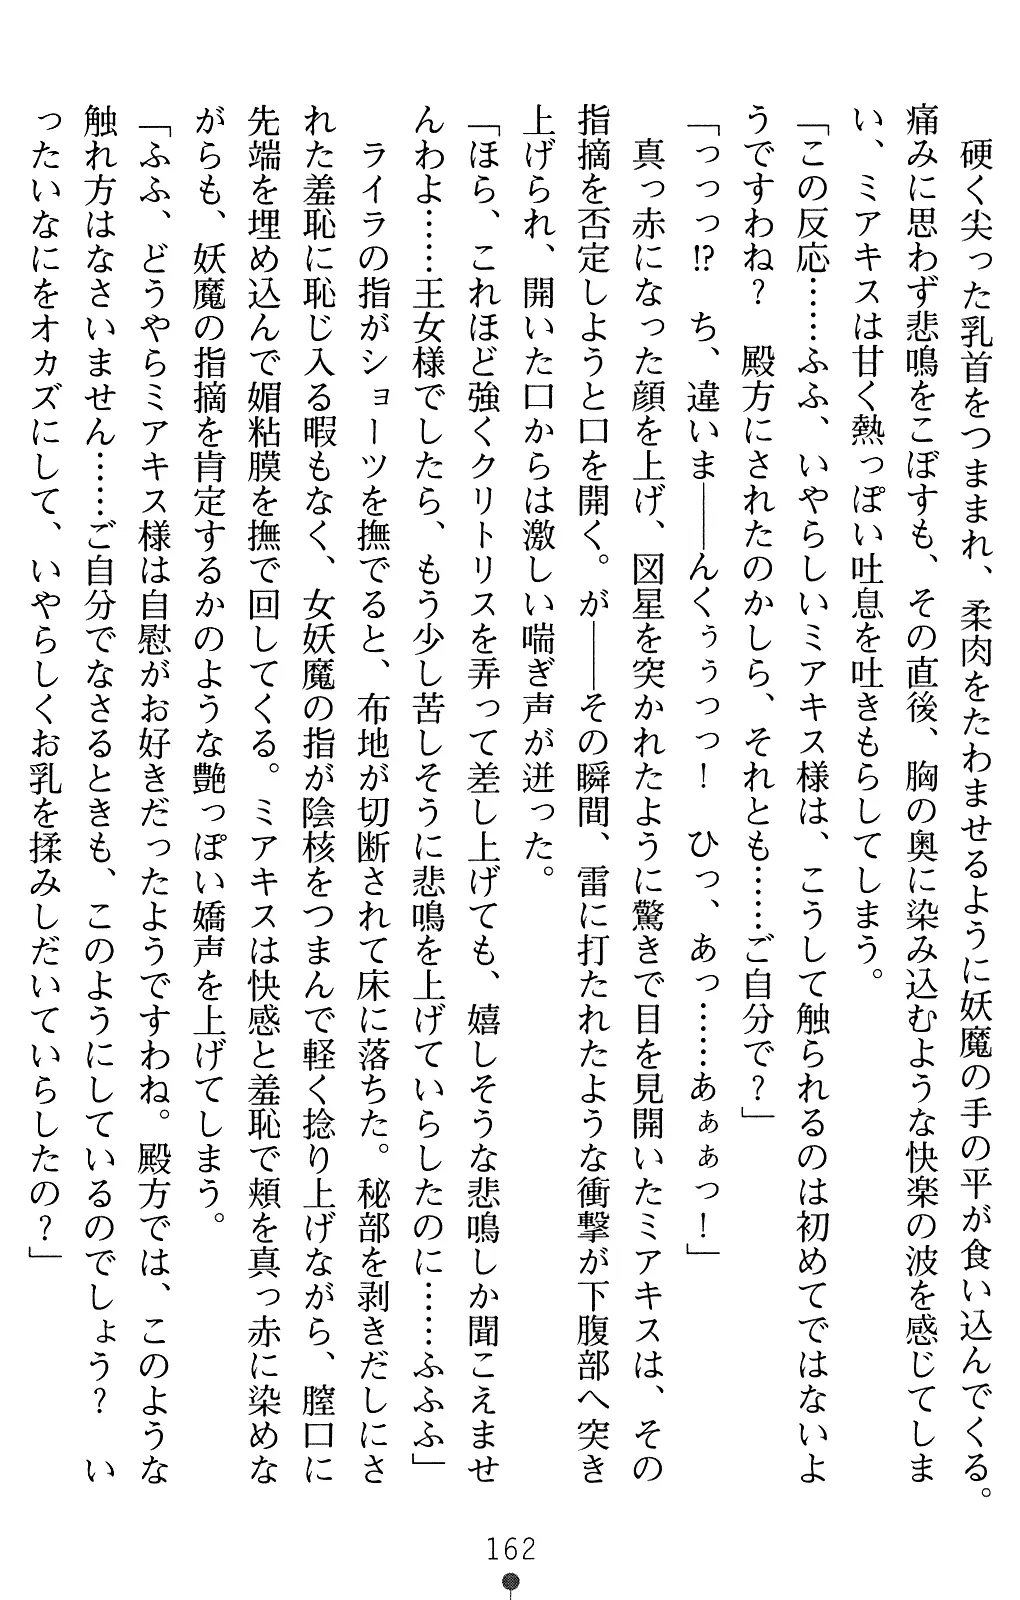 硬く尖った乳首をつままれ、柔肉をたわませるように妖魔の手の平が食い込んでくる。
痛みに思わず悲鳴をこぼすも、その直後、胸の奥に染み込むような快楽の波を感じてしま
い、ミアキスは甘く熱っぽい吐息を吐きもらしてしまう。
「この反応……ふふ、いやらしいミアキス様は、こうして触られるのは初めてではないよ
うですわね？　殿方にされたのかしら、それとも……ご自分で？」
「っっっ!?　ち、違いま――んくぅぅっっ！　ひっ、あっ……あぁぁっ！」
　真っ赤になった顔を上げ、図星を突かれたように驚きで目を見開いたミアキスは、その
指摘を否定しようと口を開く。が――その瞬間、雷に打たれたような衝撃が下腹部へ突き
上げられ、開いた口からは激しい喘ぎ声が迸った。
「ほら、これほど強くクリトリスを弄って差し上げても、嬉しそうな悲鳴しか聞こえませ
んわよ……王女様でしたら、もう少し苦しそうに悲鳴を上げていらしたのに……ふふふ」
　ライラの指がショーツを撫でると、布地が切断されて床に落ちた。秘部を剥きだしにさ
れた羞恥に恥じ入る暇もなく、女妖魔の指が陰核をつまんで軽く捻り上げながら、膣口に
先端を埋め込んで媚粘膜を撫で回してくる。ミアキスは快感と羞恥で頬を真っ赤に染めな
がらも、妖魔の指摘を肯定するかのような艶っぽい嬌声を上げてしまう。
「ふふ、どうやらミアキス様は自慰がお好きだったようですわね。殿方では、このような
触れ方はなさいません……ご自分でなさるときも、このようにしているのでしょう？　い
ったいなにをオカズにして、いやらしくお乳を揉みしだいていらしたの？」
162